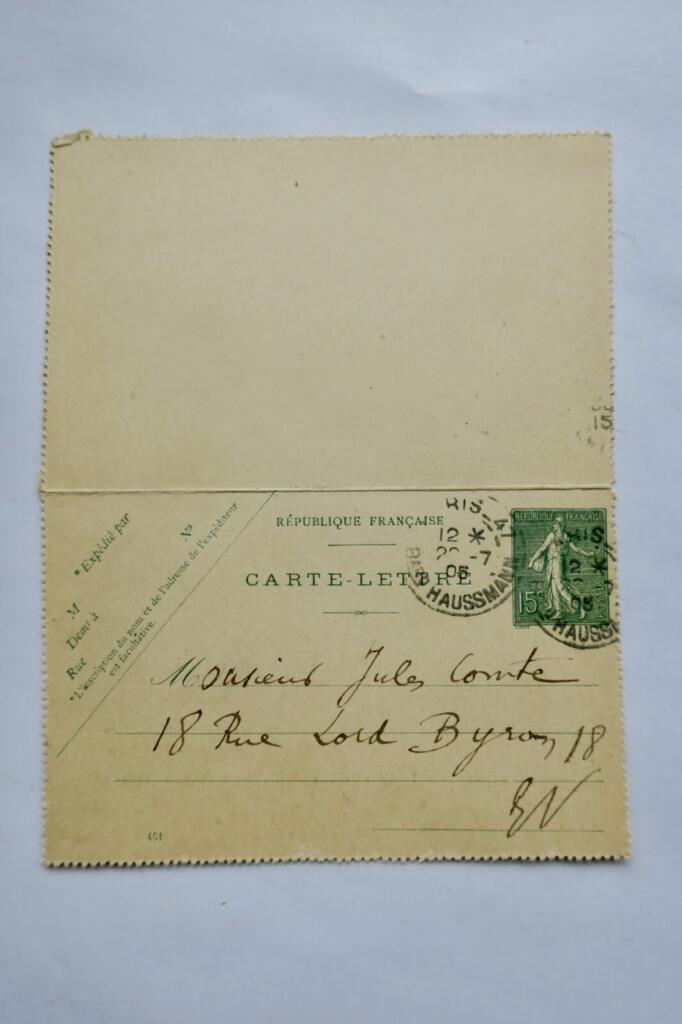 15
* Expédié par
N°
M
Demt à
Rue
*L'inscription du nom et de l'adresse de l'expéditeur
est facultative.
RÉPUBLIQUE FRANÇAISE
CARTE-LETTRE
RIS
12 *
-7
05
BARD HAUSSMANN
RÉPUBLIQUE FRANÇAISE
15c
RIS
12 *
05
HAUSSM
Monsieur Jules Comte
18 Rue Lord Byron 18
EV
461